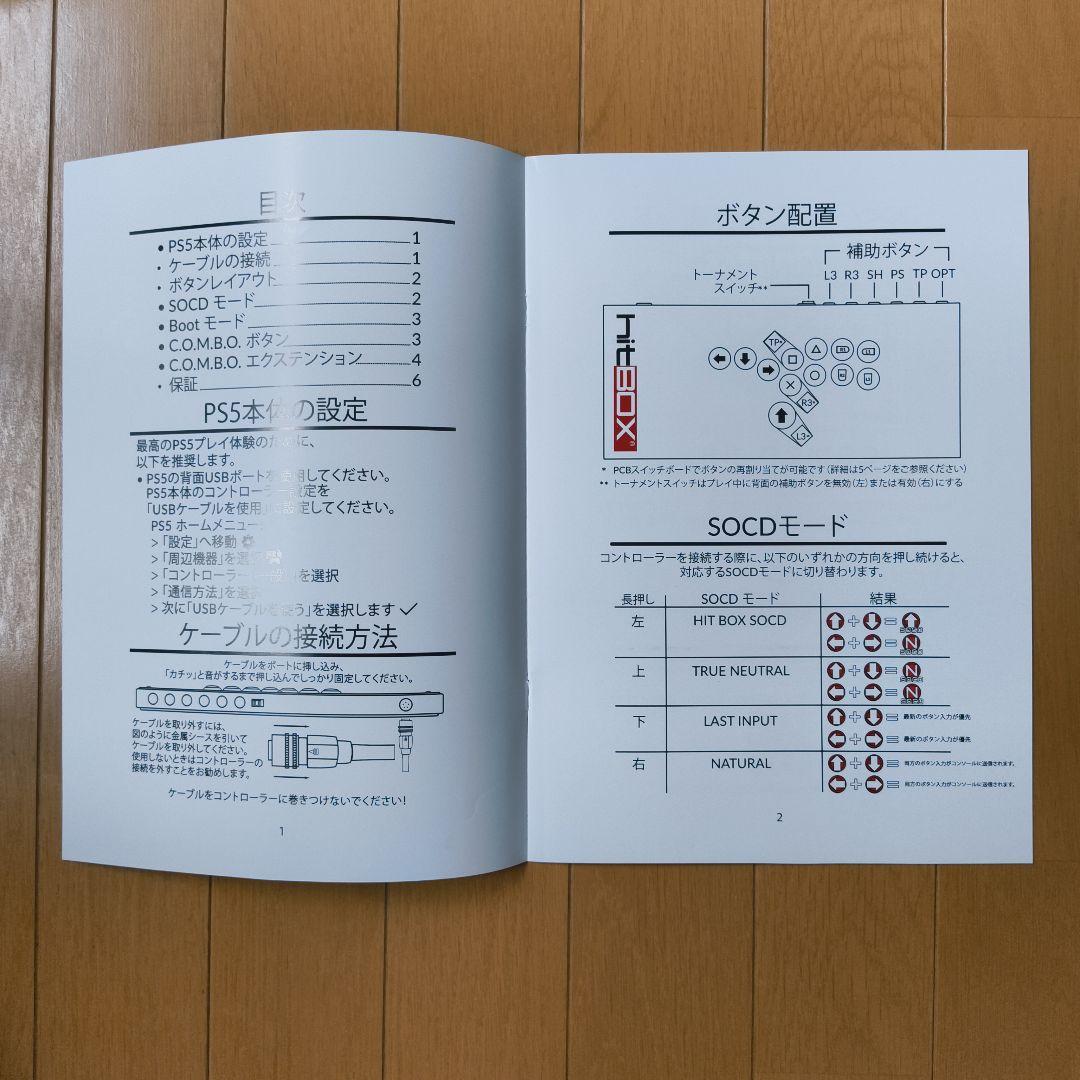 目次
• PS5本体の設定 1
• ケーブルの接続 1
• ボタンレイアウト 2
• SOCD モード 2
• Boot モード 3
• C.O.M.B.O. ボタン 3
• C.O.M.B.O. エクステンション 4
• 保証 6
PS5本体の設定
最高のPS5プレイ体験のために、
以下を推奨します。
• PS5の背面USBポートを使用してください。
PS5本体のコントローラー設定を
「USBケーブルを使用」に設定してください。
PS5 ホームメニュー:
> 「設定」へ移動
> 「周辺機器」を選択
> 「コントローラー(一般)」を選択
> 「通信方法」を選択
> 次に「USBケーブルを使う」を選択します
ケーブルの接続方法
ケーブルをポートに挿し込み、
「カチッ」と音がするまで押し込んでしっかり固定してください。
ケーブルを取り外すには、
図のように金属シースを引いて
ケーブルを取り外してください。
使用しないときはコントローラーの
接続を外すことをお勧めします。
ケーブルをコントローラーに巻きつけないでください!
1
ボタン配置
補助ボタン
トーナメント
スイッチ**
L3 R3 SH PS TP OPT
hitBOX
TP*
R3*
L3*
* PCBスイッチボードでボタンの再割り当てが可能です(詳細は5ページをご参照ください)
** トーナメントスイッチはプレイ中に背面の補助ボタンを無効(左)または有効(右)にする
SOCDモード
コントローラーを接続する際に、以下のいずれかの方向を押し続けると、
対応するSOCDモードに切り替わります。
長押し SOCD モード 結果
左 HIT BOX SOCD + =
+ = N
上 TRUE NEUTRAL + = N
+ = N
下 LAST INPUT + = 最新のボタン入力が優先
+ = 最新のボタン入力が優先
右 NATURAL + = 両方のボタン入力がコンソールに送信されます。
+ = 両方のボタン入力がコンソールに送信されます。
2